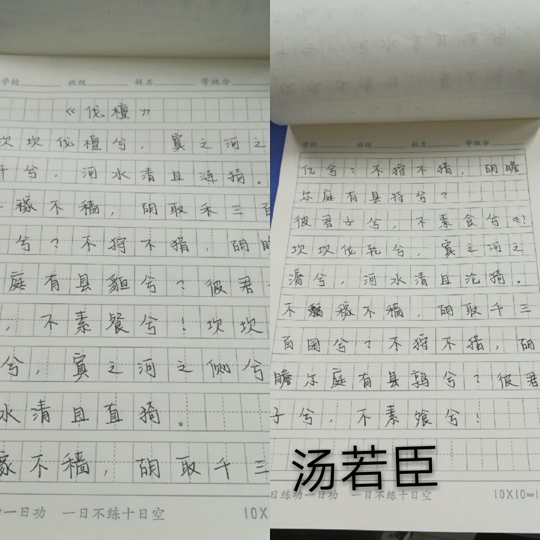 学校 班级 姓名 等级分
《伐檀》
坎坎伐檀兮，寘之河之
干兮，河水清且涟猗。
稼不穑，胡取禾三百
兮？不狩不猎，胡瞻
庭有县貆兮？彼君
，不素餐兮！坎坎
兮，寘之河之侧兮
水清且直猗。
稼不穑，胡取千三
一日功 一日不练十日空 10X
学校 班级 姓名 等级分
亿兮？不狩不猎，胡瞻
尔庭有县特兮？
彼君子兮，不素食兮？！
坎坎伐轮兮，寘之河之
漘兮，河水清且沦猗。
不稼不穑，胡取千三
百囷兮？不狩不猎，胡
瞻尔庭有县鹑兮？彼君
子兮，不素飧兮！
汤若臣
日练一日功 一日不练十日空 10X10=1